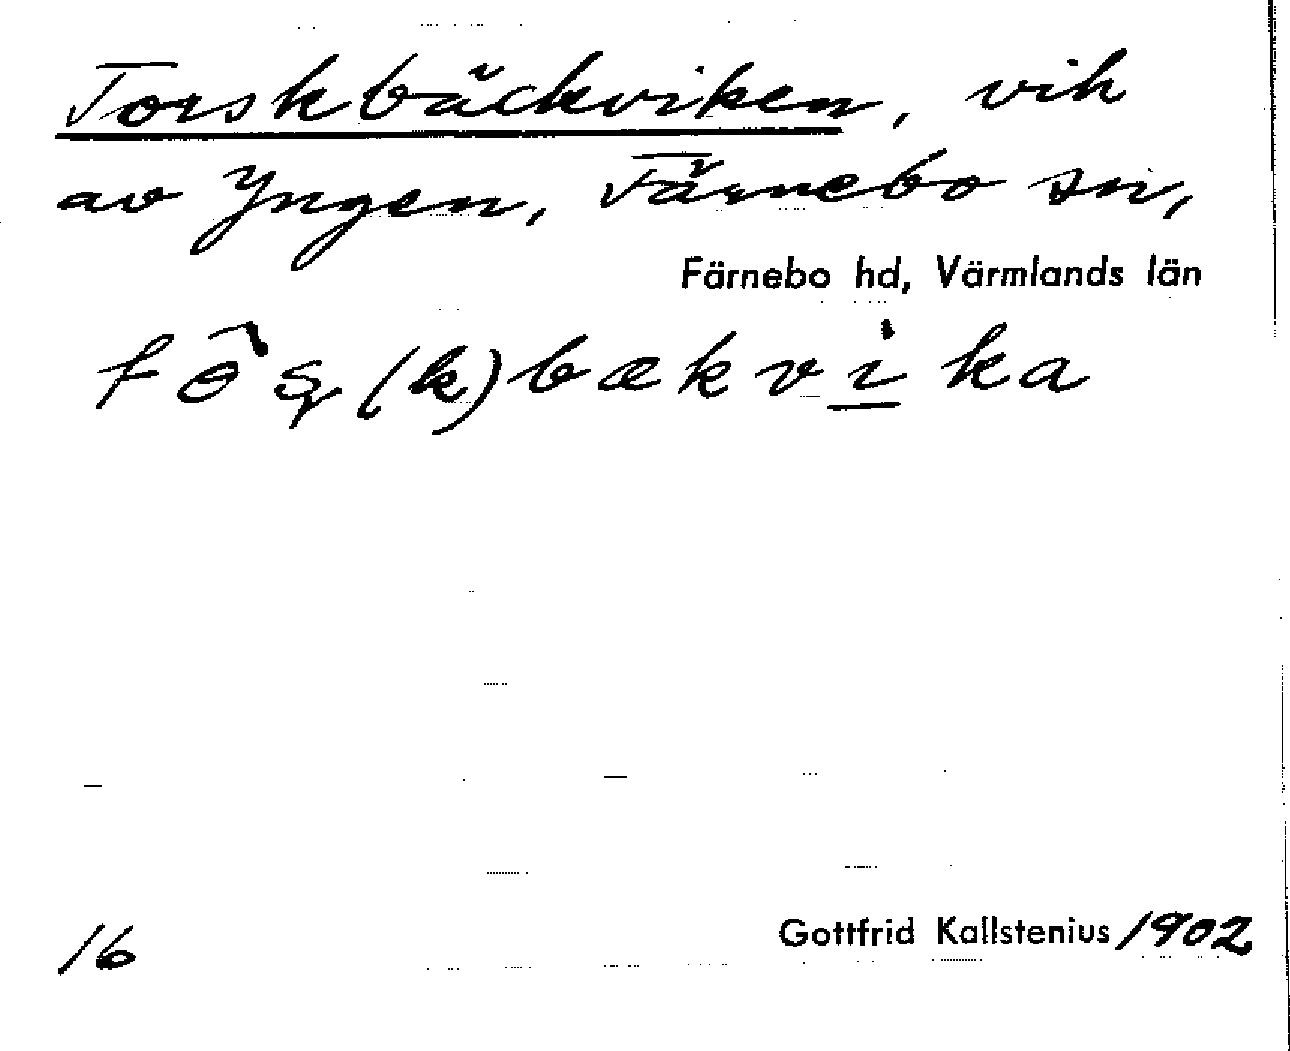 Torskbäckviken, vik
av Yngen, Färnebo sn,
Färnebo hd, Värmlands län
16
Gottfrid Kallstenius 1902